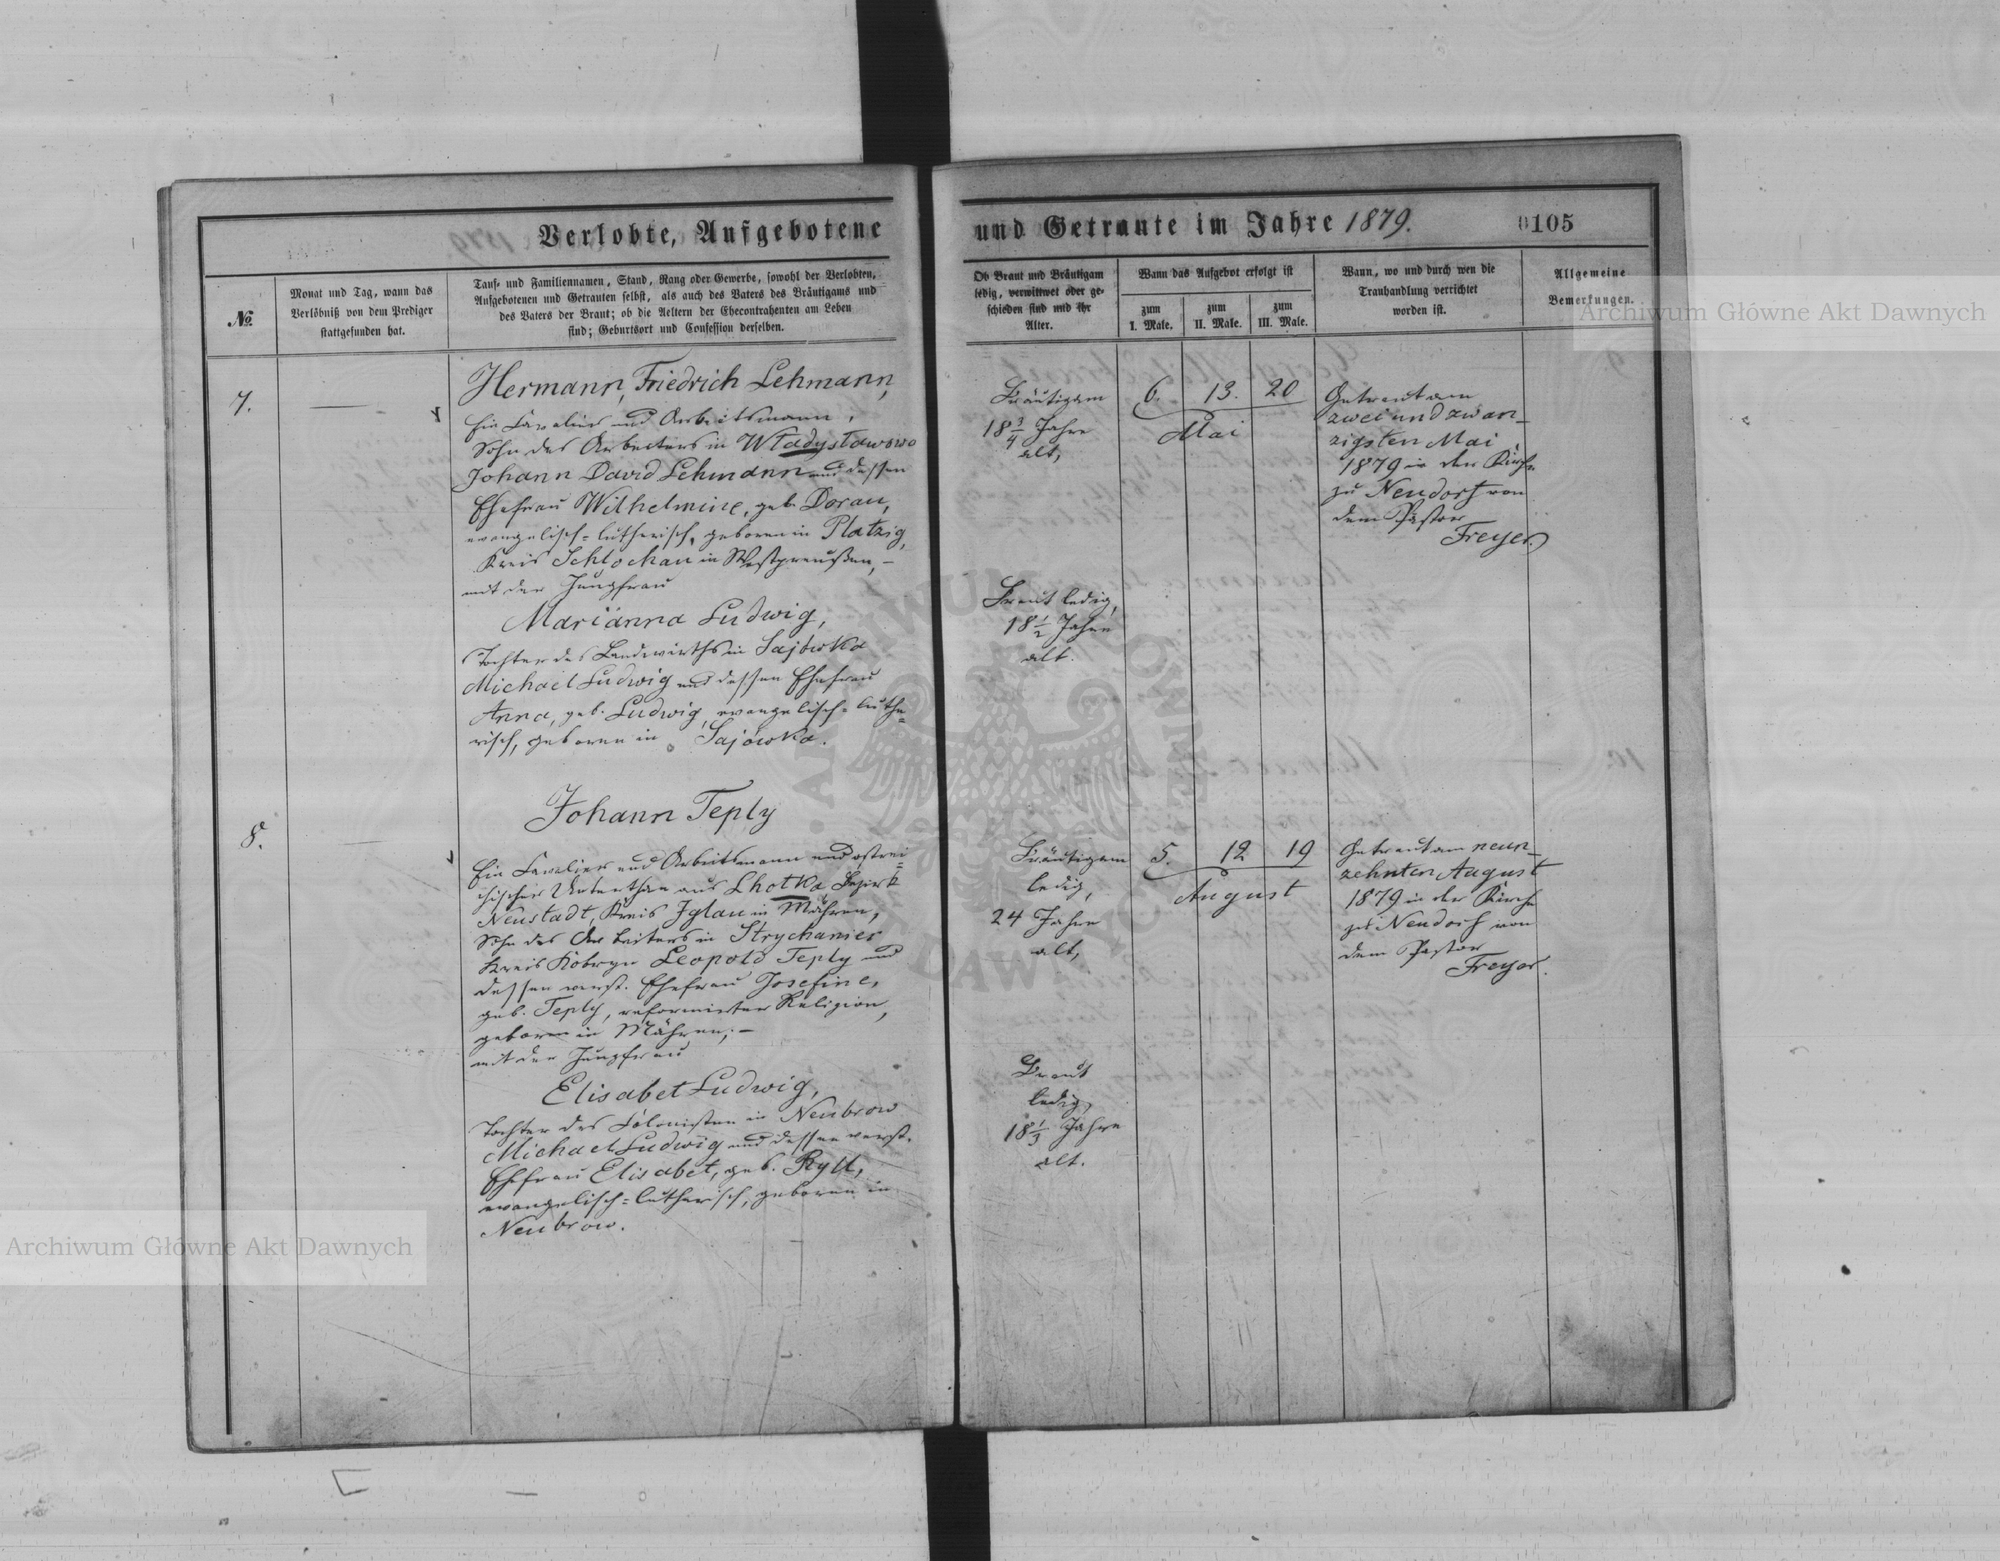 Verlobte, Aufgebotene
№
Monat und Tag, wann das
Verlöbniß von dem Prediger
stattgefunden hat.
Tauf- und Familiennamen, Stand, Rang oder Gewerbe, sowohl der Verlobten,
Aufgebotenen und Getrauten selbst, als auch des Vaters des Bräutigams und
des Vaters der Braut; ob die Aeltern der Ehecontrahenten am Leben
sind; Geburtsort und Confession derselben.
7.
Hermann, Friedrich Lehmann,
Ein Cavalier und Arbeitsmann,
Sohn des Arbeiters in Władysławowo
Johann David Lehmann und dessen
Ehefrau Wilhelmine, geb. Dorau,
evangelisch-lutherisch, geboren in Platzig,
Kreis Schlochau in Westpreußen, –
mit der Jungfrau
Marianna Ludwig,
Tochter des Landwirths in Sajówka
Michael Ludwig und dessen Ehefrau
Anna, geb. Ludwig, evangelisch-luthe-
risch, geboren in Sajówka.
8.
Johann Teply
Ein Cavalier und Arbeitsmann und östrei-
chischer Unterthan aus Lhotka, Bezirk
Neustadt, Kreis Iglau in Mähren,
Sohn des Arbeiters in Strychaniec
Kreis Kobryn Leopold Teply und
dessen verst. Ehefrau Josefine,
geb. Teply, reformirter Religion,
geboren in Mähren; –
mit der Jungfrau
Elisabet Ludwig,
Tochter des Colonisten in Neubrow
Michael Ludwig und dessen verst.
Ehefrau Elisabet, geb. Ryll,
evangelisch-lutherisch, geboren in
Neubrow.
und Getraute im Jahre 1879.
0105
Ob Braut und Bräutigam
ledig, verwittwet oder ge-
schieden sind und ihr
Alter.
Wann das Aufgebot erfolgt ist
zum
I. Male.
zum
II. Male.
zum
III. Male.
Wann, wo und durch wen die
Trauhandlung verrichtet
worden ist.
Allgemeine
Bemerkungen.
Bräutigam
18 3/4 Jahre
alt,
6. 13. 20
Mai
Getraut am
zwei und zwan-
zigsten Mai
1879 in der Kirche
zu Neudorf von
dem Pastor
Freyer.
Braut ledig,
18 1/2 Jahre
alt.
Bräutigam
ledig,
24 Jahre
alt,
5. 12 19
August
Getraut am neun-
zehnten August
1879 in der Kirche
zu Neudorf von
dem Pastor
Freyer.
Braut
ledig,
18 1/3 Jahre
alt.
Archiwum Główne Akt Dawnych
Archiwum Główne Akt Dawnych
ARCHIWUM GŁÓWNE AKT DAWNYCH